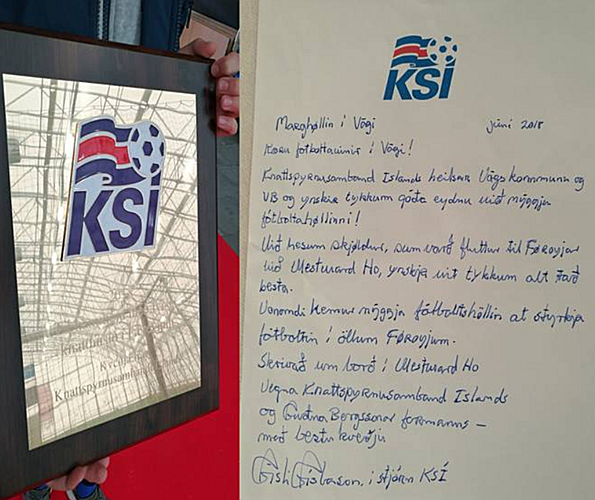 KSÍ
Knattspyrnusamband
KSÍ
Marghøllin í Vági juni 2018
Kæru fótbóltavinir í Vági!
Knattspyrnusamband Íslands heilsar Vágs kommunu og
VB og ynskir tykkum góða eydnu við nýggju
fótbóltahøllini!
Við hesum skjøldur, sum varð fluttur til Føroyjar
við Vesturvard Ho, ynskja vit tykkum alt tað
besta.
Vónandi kemur nýggja fótbóltshøllin at styrkja
fótbóltin í øllum Føroyjum.
Skrivað um borð í Vesturvard Ho
Vegna Knattspyrnusamband Íslands
og Guðna Bergssonar formanns –
með bestu kveðju
Gísli Gíslason, í stjórn KSÍ